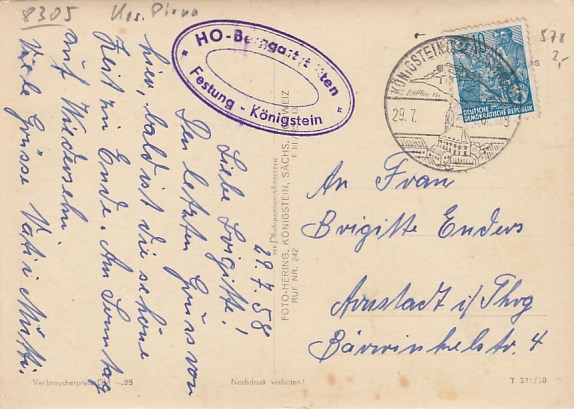 8305 Krs. Pirna
578
2,-
HO-Berggaststätten
Festung - Königstein
KÖNIGSTEIN
29.7.
DEUTSCHE
DEMOKRATISCHE REPUBLIK
29.7.58
Liebe Brigitte!
Den letzten Gruss von
hier, bald ist die schöne
Zeit zu Ende. Am Sonntag
auf Wiedersehn.
Viele Grüsse Vati u Mutti.
FOTO-HERING, KÖNIGSTEIN, SÄCHS. SCHWEIZ
RUF NR. 242
An Frau
Brigitte Enders
Arnstadt i/Thrg
Bärwinkelstr. 4
Verbraucherpreis DM -.25
Nachdruck verboten!